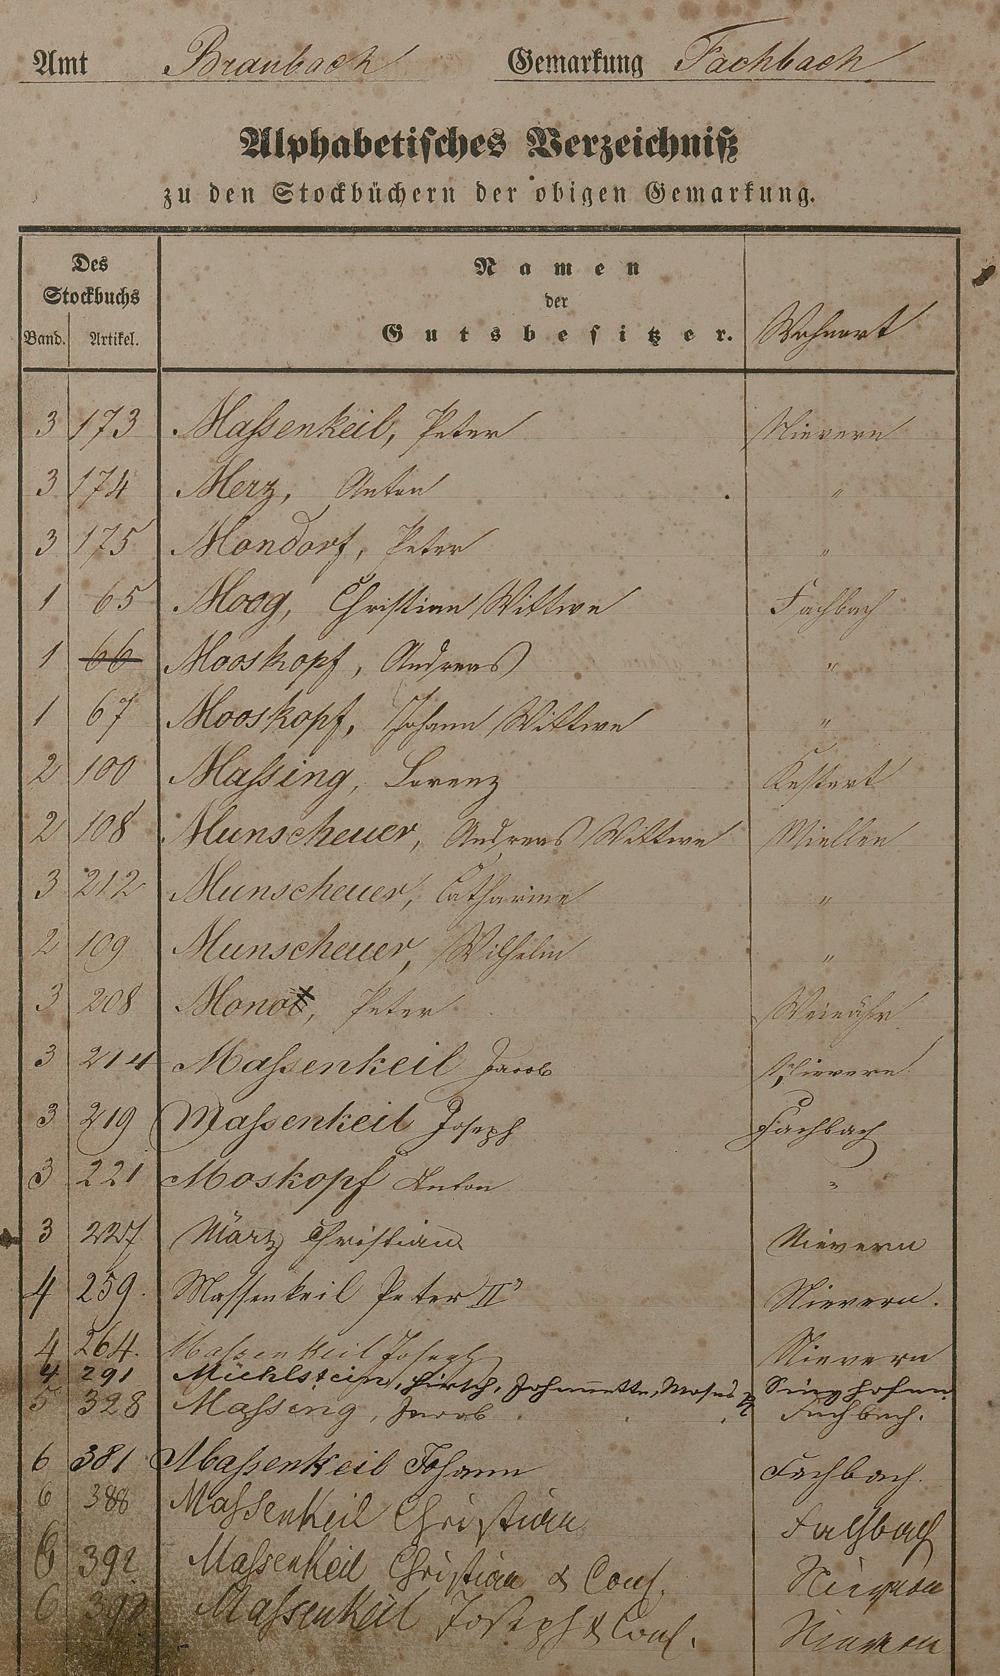 Amt Braubach Gemarkung Fachbach
Alphabetisches Verzeichniß
zu den Stockbüchern der obigen Gemarkung.
Des Stockbuchs
Band. Artikel.
Namen
der
Gutsbesitzer.
Wohnort
3 173 Maßenkeil, Peter Nievern
3 174 Merz, Anton "
3 175 Mondorf, Peter "
1 65 Moog, Christian Wittwe Fachbach
1 66 Mooskopf, Andreas "
1 67 Mooskopf, Johann Wittwe "
2 100 Maßing, Lorenz Kestert
2 108 Munscheuer, Andreas Wittwe Miellen
3 212 Munscheuer, Catharine "
2 109 Munscheuer, Wilhelm "
3 208 Mono, Peter Weinähr
3 214 Maßenkeil Jacob Nievern
3 219 Maßenkeil Joseph Fachbach
3 221 Moskopf Anton "
3 227 März Christian Nievern
4 259. Massenkeil Peter IIr Nievern.
4 264. Maßenkeil Joseph Nievern
4 291 Mühlstein, Hirsch, Johannette, Moses Singhofen
5 328 Maßing, Jacob Fachbach.
6 381 Maßenkeil Johann Fachbach.
6 388 Maßenkeil Christian Fachbach
6 392 Maßenkeil Christian & Cons. Nievern
6 Maßenkeil Joseph & Cons. Nievern